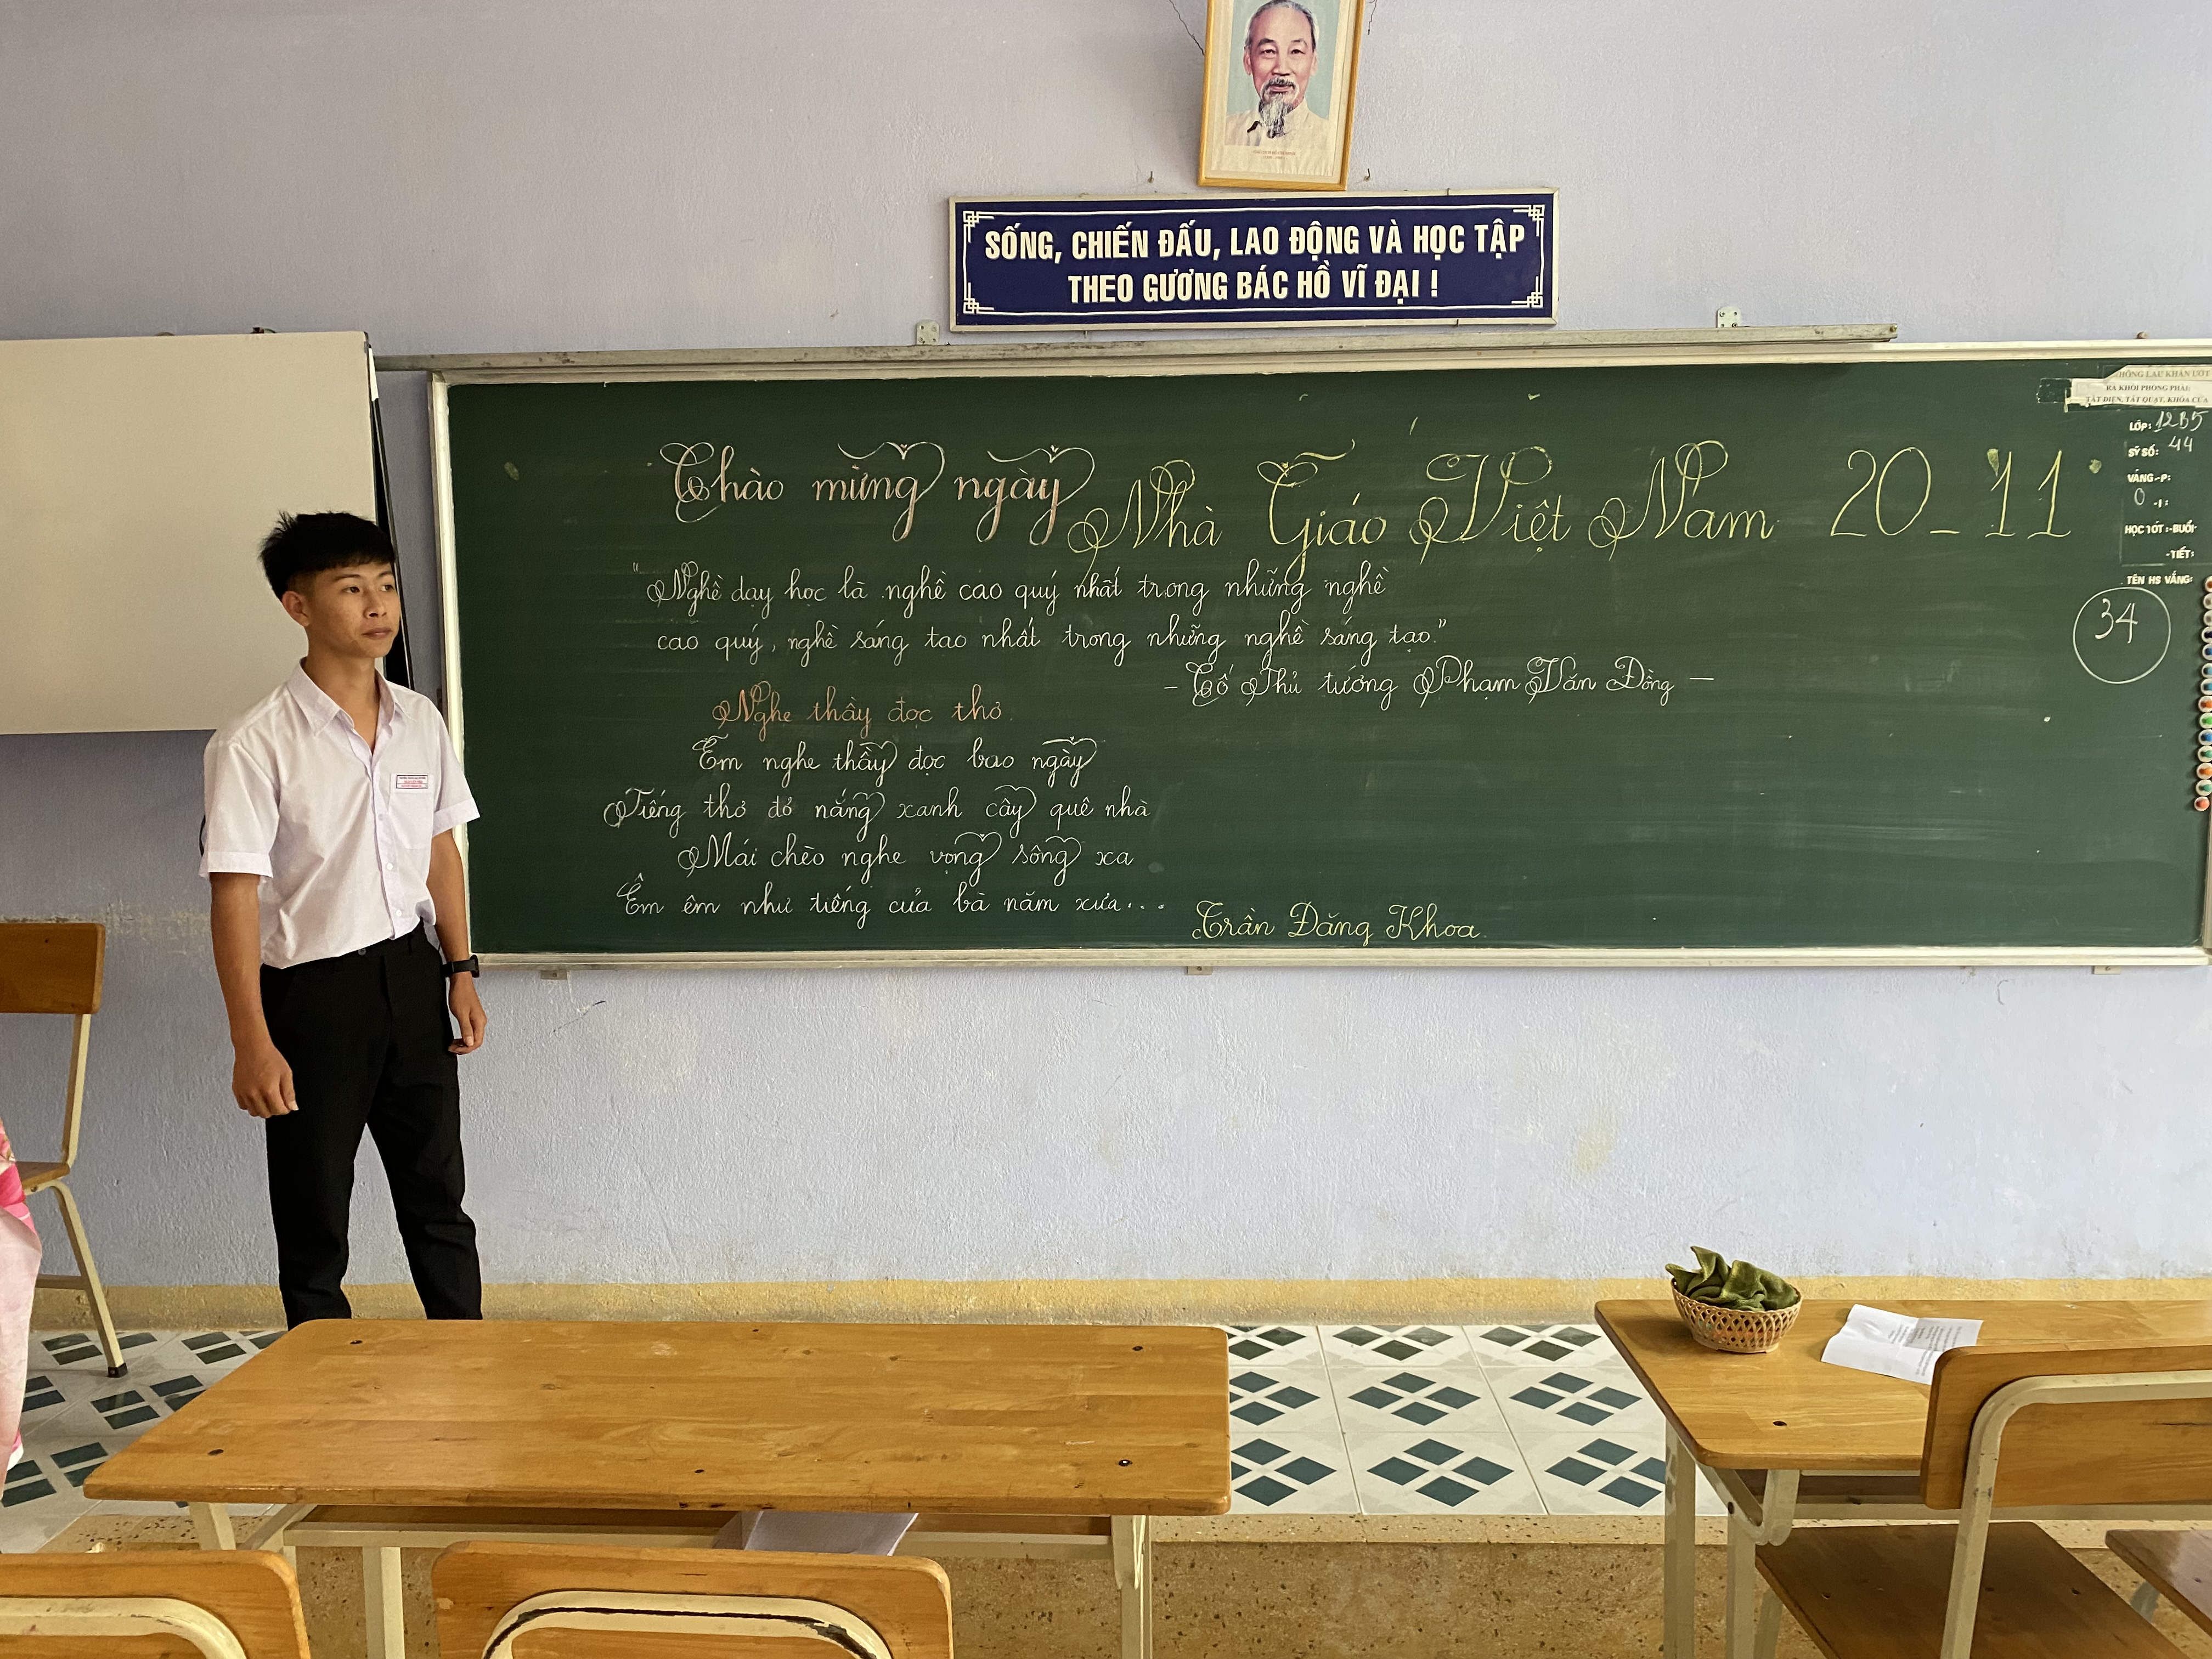 SỐNG, CHIẾN ĐẤU, LAO ĐỘNG VÀ HỌC TẬP
THEO GƯƠNG BÁC HỒ VĨ ĐẠI !
KHÔNG LAU KHĂN ƯỚT
RA KHỎI PHÒNG PHẢI:
TẮT ĐIỆN, TẮT QUẠT, KHÓA CỬA
LỚP: 12B5
SỸ SỐ: 44
VẮNG -P:
0 -I :
HỌC TỐT :-BUỔI:
-TIẾT:
TÊN HS VẮNG:
34
Chào mừng ngày Nhà Giáo Việt Nam 20-11
"Nghề dạy học là nghề cao quý nhất trong những nghề
cao quý, nghề sáng tao nhất trong những nghề sáng tạo."
- Cố Thủ tướng Phạm Văn Đồng -
Nghe thầy đọc thơ
Em nghe thầy đọc bao ngày
Tiếng thơ đỏ nắng xanh cây quê nhà
Mái chèo nghe vọng sông xa
Êm êm như tiếng của bà năm xưa...
Trần Đăng Khoa